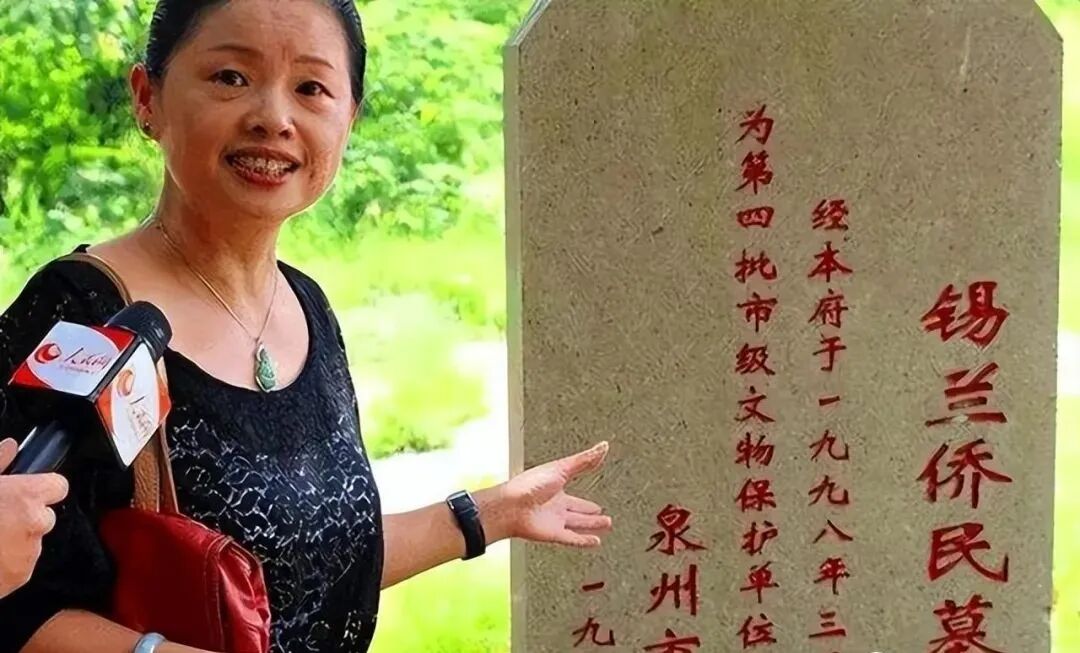 锡兰侨民墓
经本府于一九九八年三
为第四批市级文物保护单位
泉州市
一九
人民网